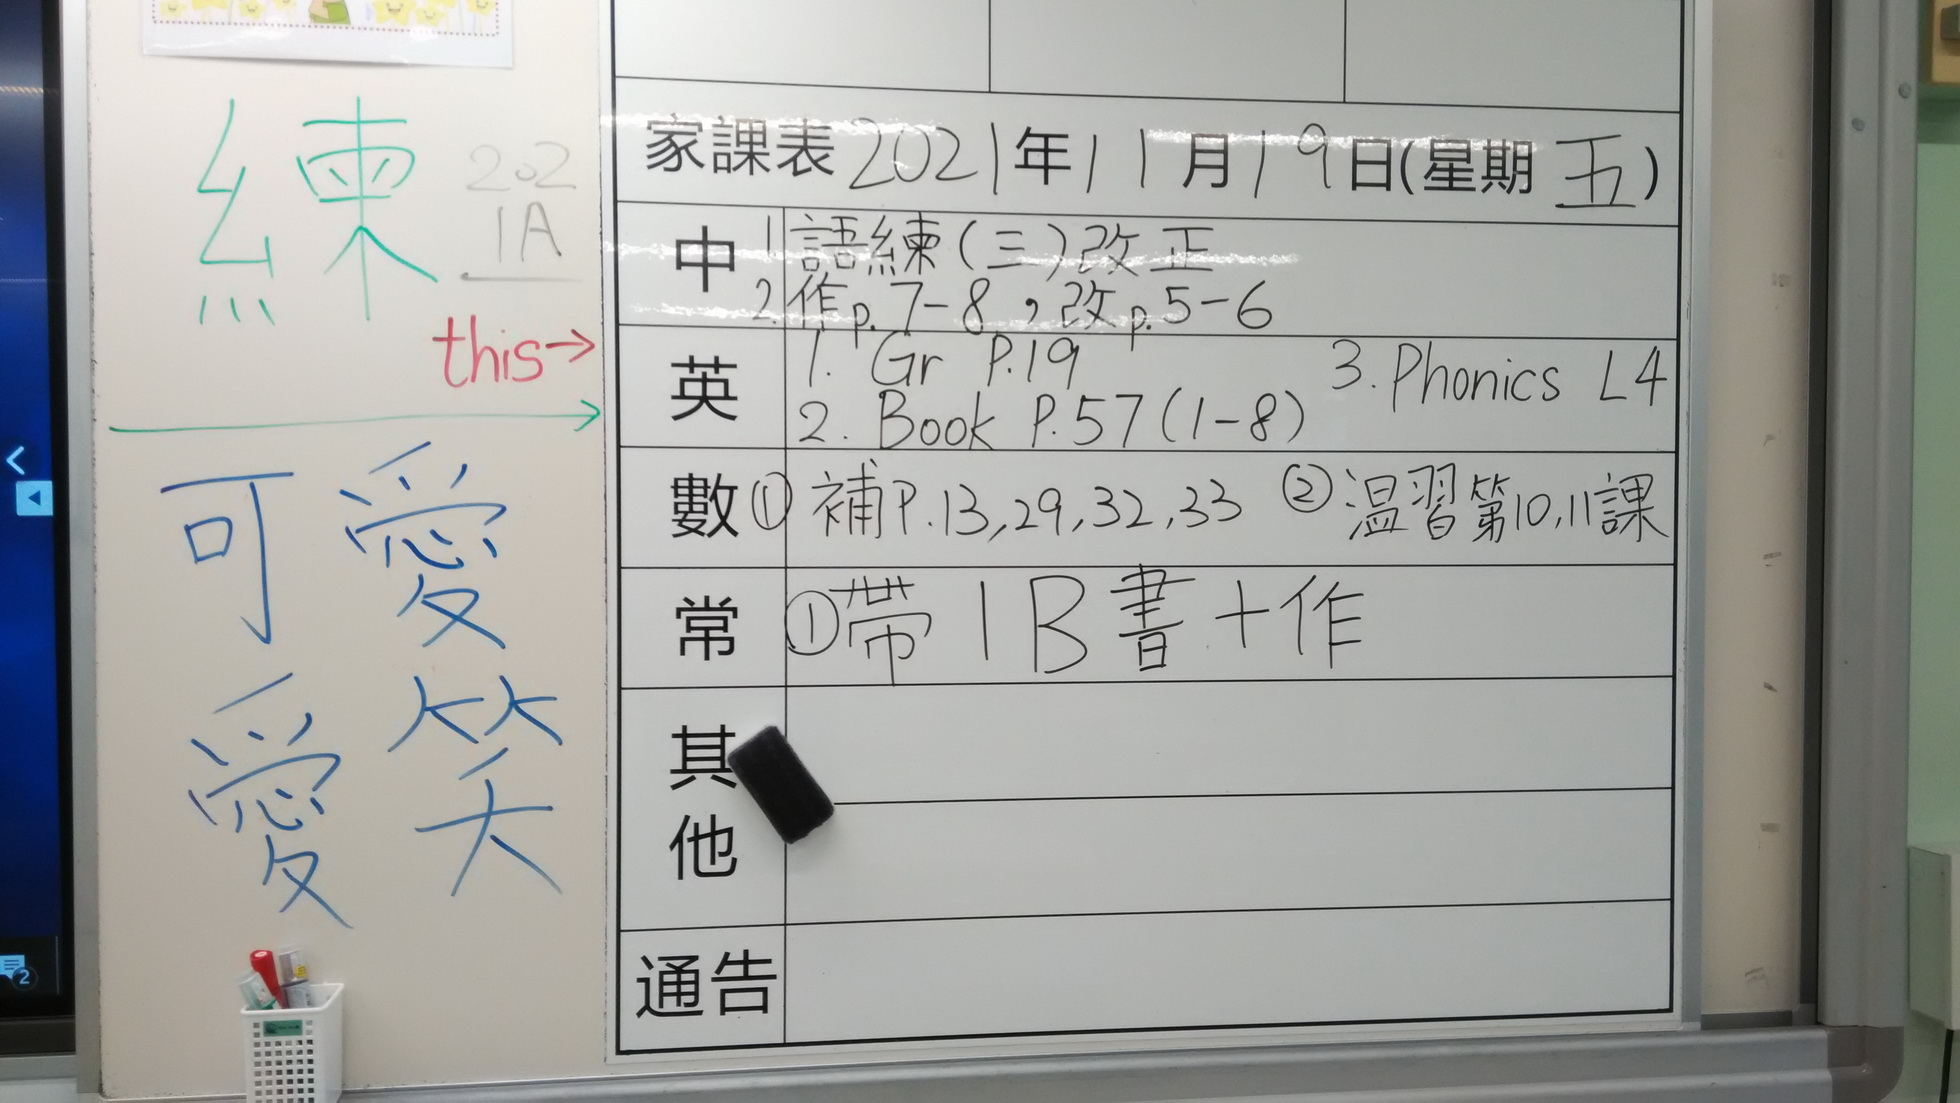 練
202
1A
this→
可愛
愛笑
家課表 2021年11月19日(星期五)
中 1. 語練(三)改正
2. 作p.7-8,改p.5-6
英 1. Gr P.19 3. Phonics L4
2. Book P.57(1-8)
數 ① 補P.13,29,32,33 ② 温習第10,11課
常 ①帶1B書+作
其他
通告
2